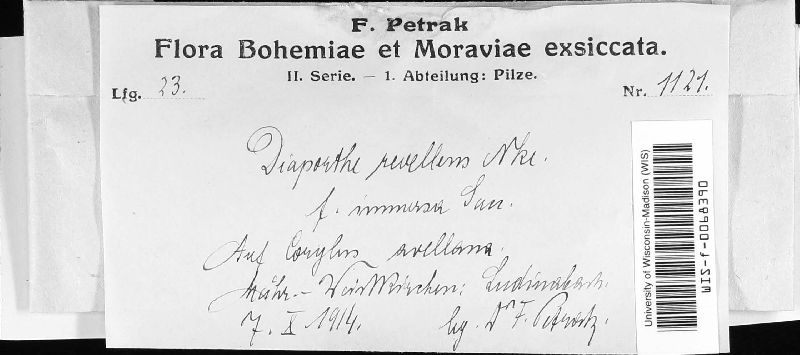 F. Petrak
Flora Bohemiae et Moraviae exsiccata.
II. Serie. – 1. Abteilung: Pilze.
Lfg. 23.
Nr. 1121.
Diaporthe revellens Nke.
f. immersa Sacc.
Auf Corylus avellana.
Mähr.-Weisskirchen:
7. X 1914.
lg. Dr F. Petrak.
University of Wisconsin-Madison (WIS)
WIS-f-0068390